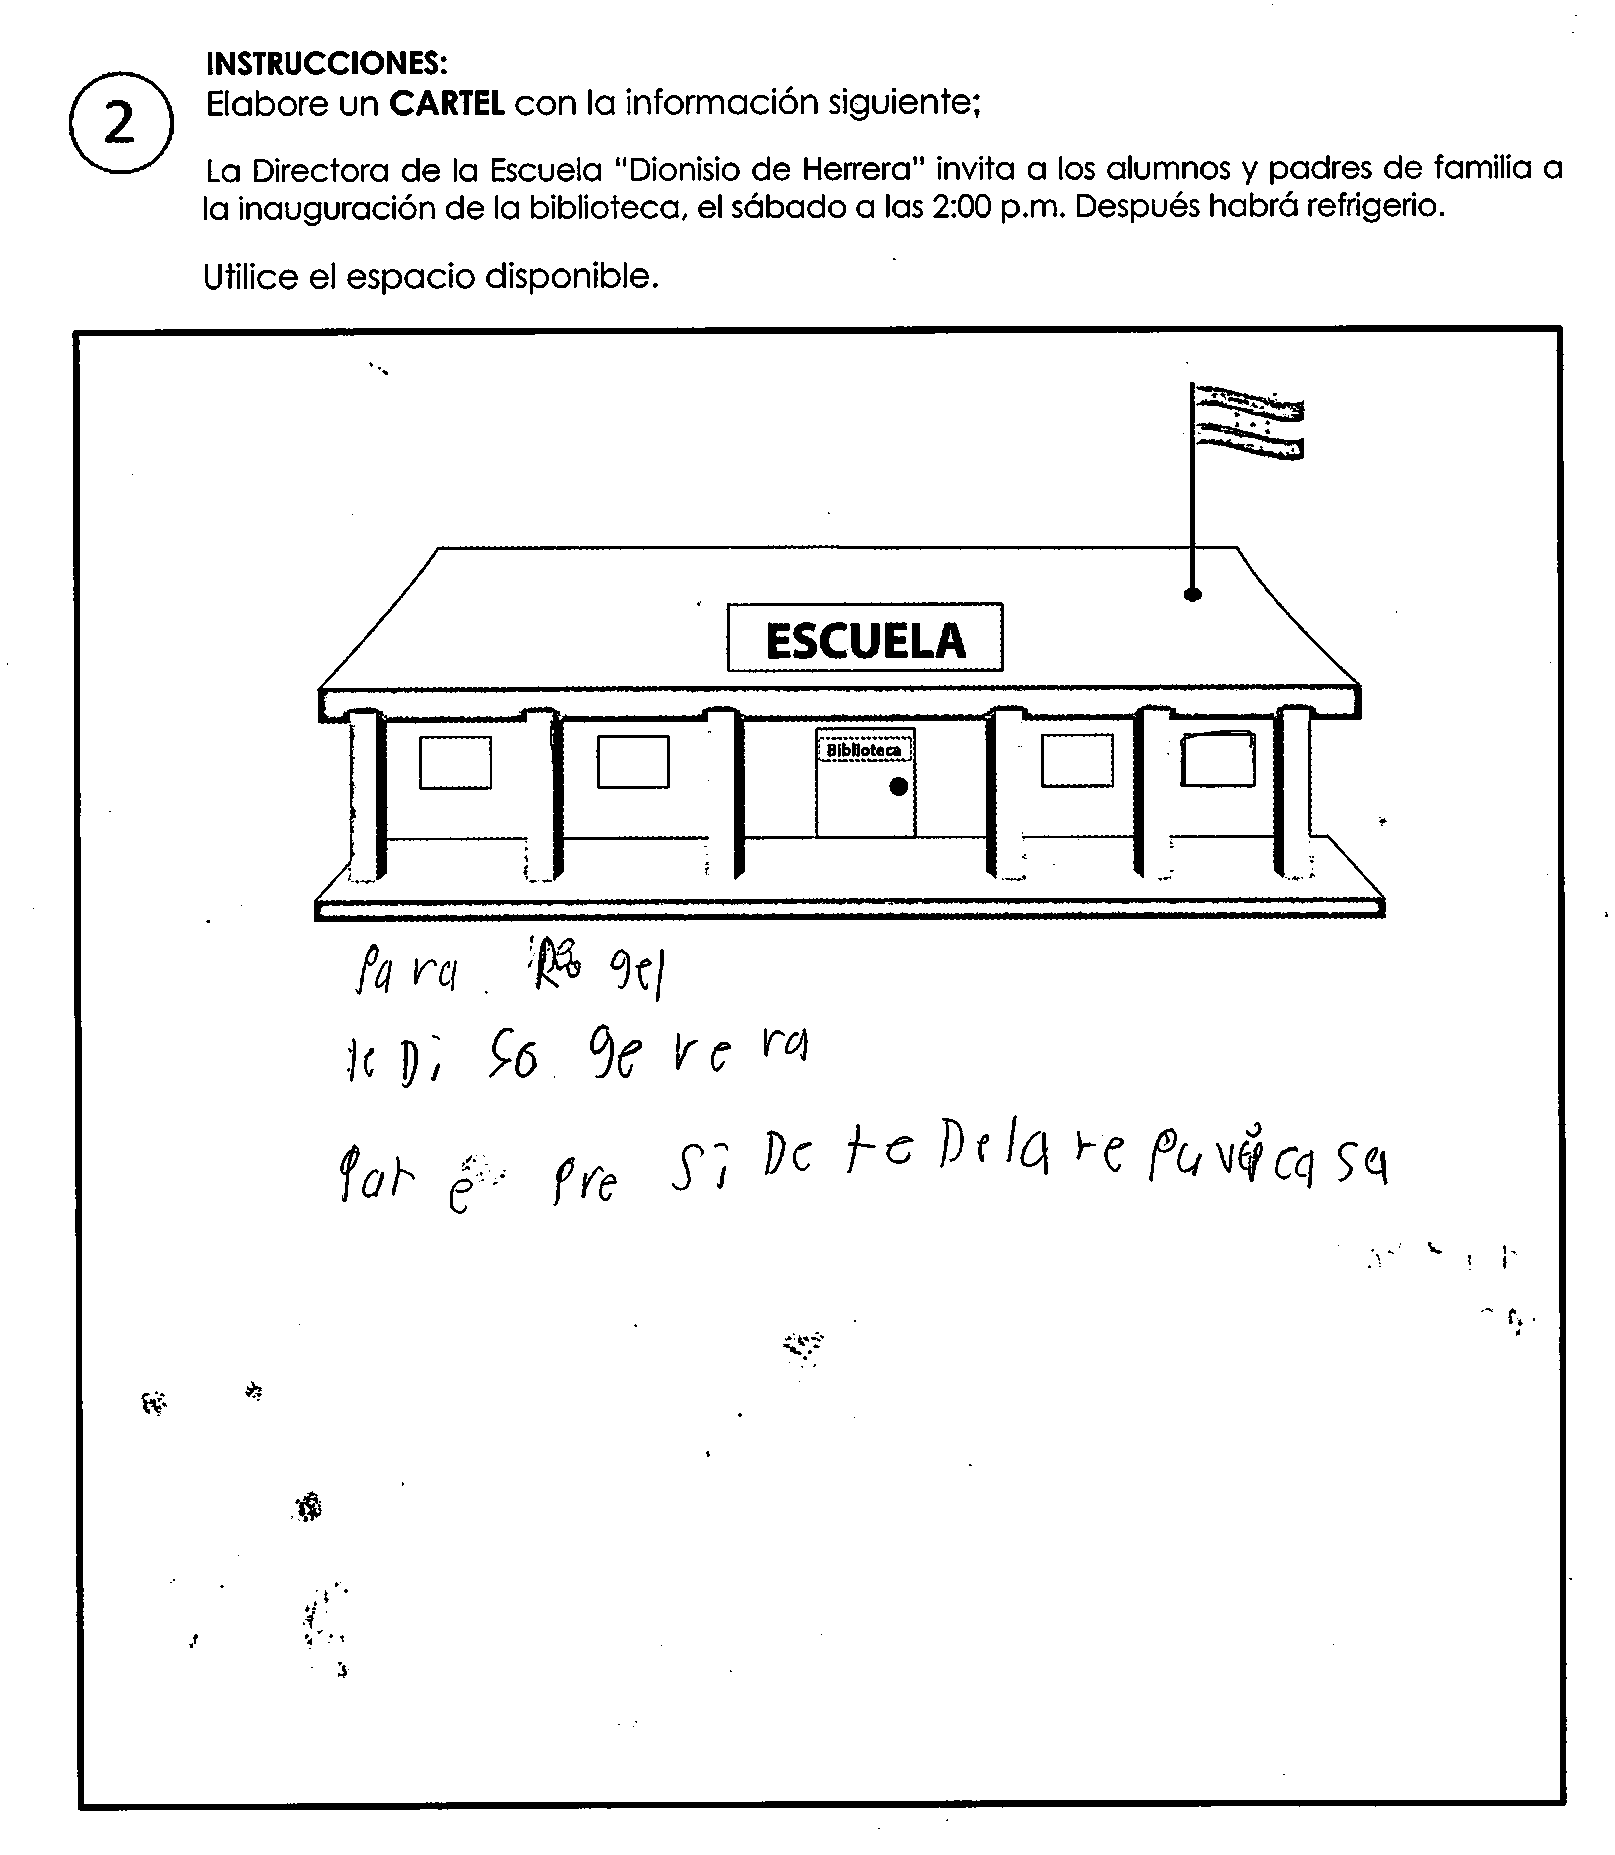 INSTRUCCIONES:
2
Elabore un CARTEL con la información siguiente;
La Directora de la Escuela "Dionisio de Herrera" invita a los alumnos y padres de familia a
la inauguración de la biblioteca, el sábado a las 2:00 p.m. Después habrá refrigerio.
Utilice el espacio disponible.
ESCUELA
Biblioteca
Para gel
le Di so ge ve ra
Par e pre si De te De la re pu casa